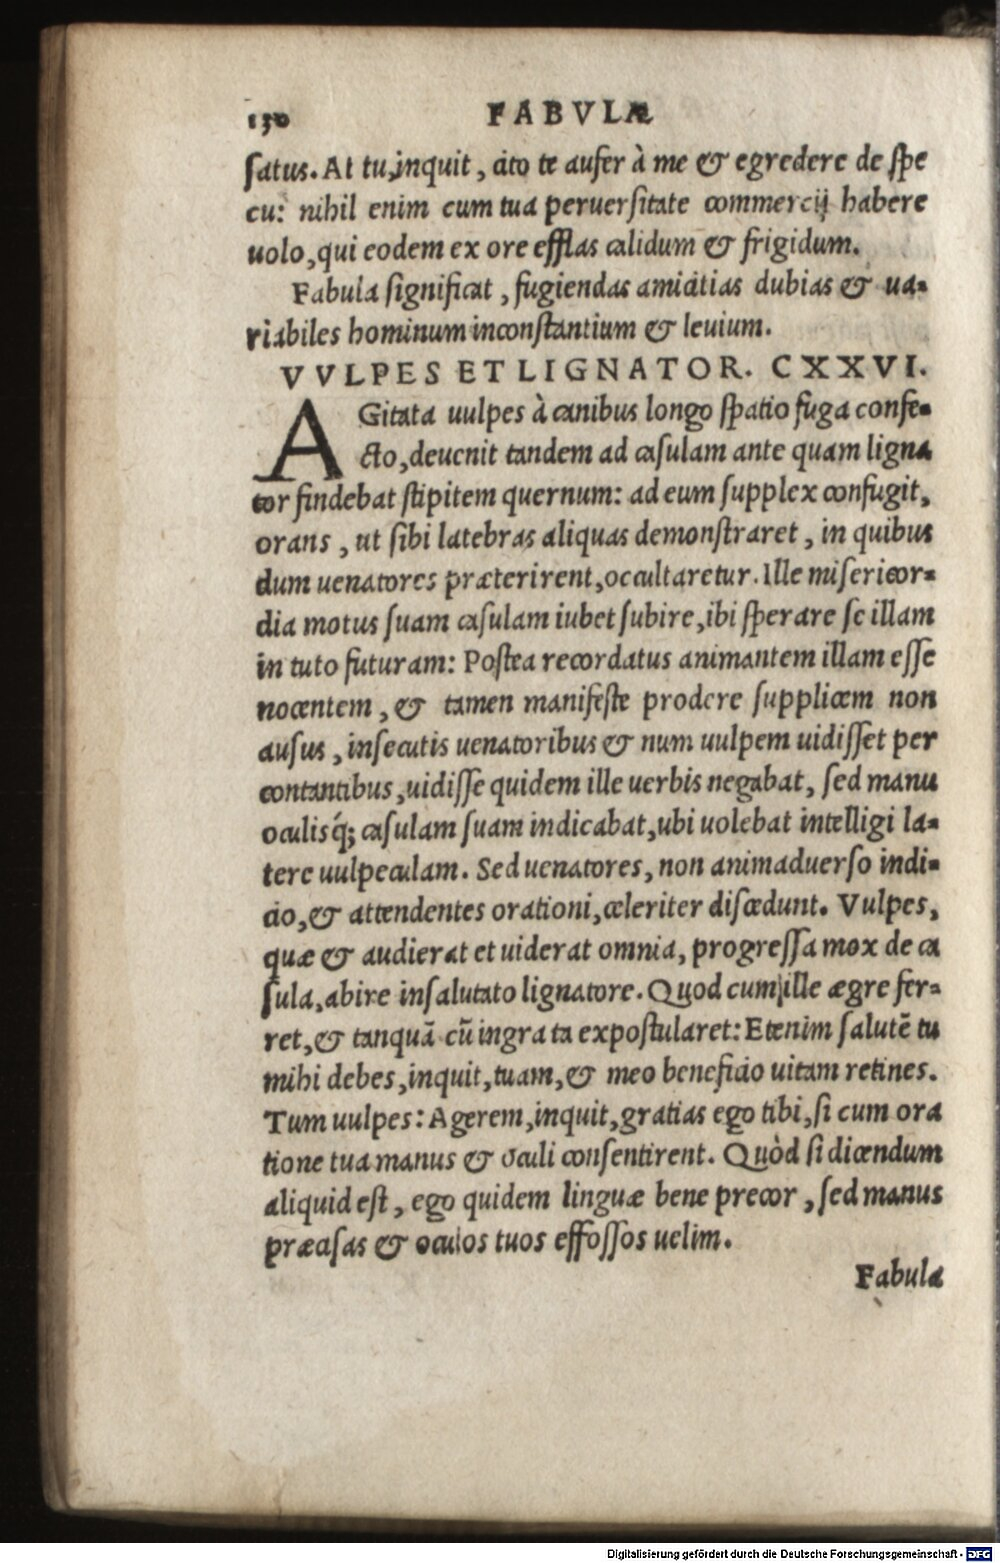 130 FABVLÆ
ſatus. At tu, inquit, cito te aufer à me & egredere de ſpe
cu: nihil enim cum tua peruerſitate commercij habere
uolo, qui eodem ex ore efflas calidum & frigidum.
Fabula ſignificat, fugiendas amicitias dubias & ua-
riabiles hominum inconſtantium & leuium.
VVLPES ET LIGNATOR. CXXVI.
AGitata uulpes à canibus longo ſpatio fuga confe-
cto, deuenit tandem ad caſulam ante quam ligna
tor findebat ſtipitem quernum: ad eum ſupplex confugit,
orans, ut ſibi latebras aliquas demonſtraret, in quibus
dum uenatores præterirent, occultaretur. Ille miſericor-
dia motus ſuam caſulam iubet ſubire, ibi ſperare ſe illam
in tuto futuram: Poſtea recordatus animantem illam eſſe
nocentem, & tamen manifeſte prodere ſupplicem non
auſus, inſecutis uenatoribus & num uulpem uidiſſet per
contantibus, uidiſſe quidem ille uerbis negabat, ſed manu
oculisq́; caſulam ſuam indicabat, ubi uolebat intelligi la-
tere uulpeculam. Sed uenatores, non animaduerſo indi-
cio, & attendentes orationi, celeriter diſcedunt. Vulpes,
quæ & audierat et uiderat omnia, progreſſa mox de ca
ſula, abire inſalutato lignatore. Quod cum ille ægre fer-
ret, & tanquā cū ingrata expoſtularet: Etenim ſalutē tu
mihi debes, inquit, tuam, & meo beneficio uitam retines.
Tum uulpes: Agerem, inquit, gratias ego tibi, ſi cum ora
tione tua manus & oculi conſentirent. Quòd ſi dicendum
aliquid eſt, ego quidem linguæ bene precor, ſed manus
præcaſas & oculos tuos effoſſos uelim.
Fabula
Digitalisierung gefördert durch die Deutsche Forschungsgemeinschaft - DFG